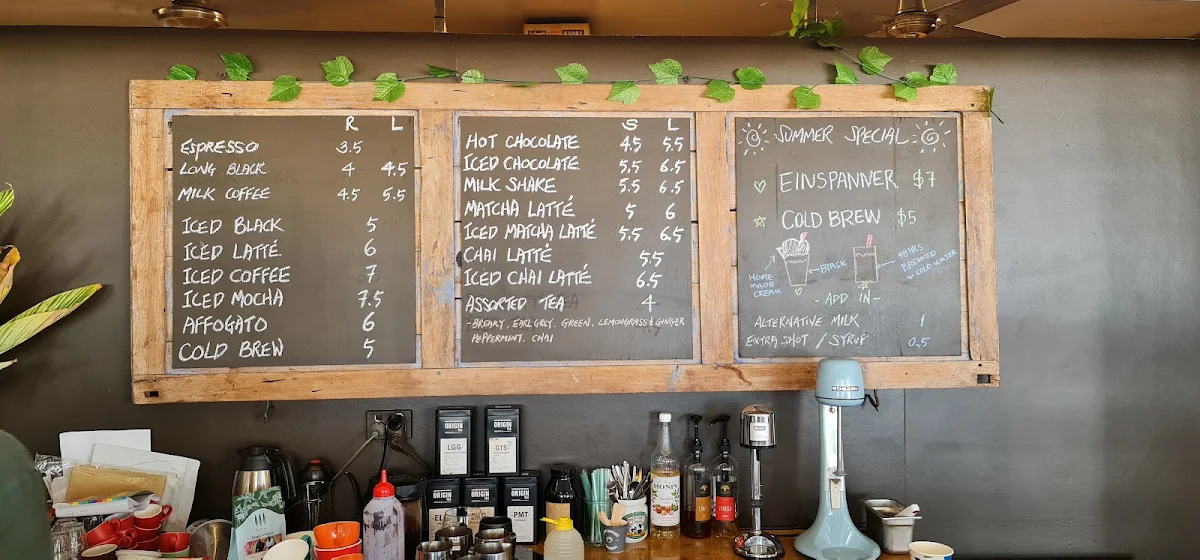 R L
ESPRESSO 3.5
LONG BLACK 4 4.5
MILK COFFEE 4.5 5.5
ICED BLACK 5
ICED LATTÉ 6
ICED COFFEE 7
ICED MOCHA 7.5
AFFOGATO 6
COLD BREW 5
S L
HOT CHOCOLATE 4.5 5.5
ICED CHOCOLATE 5.5 6.5
MILK SHAKE 5.5 6.5
MATCHA LATTÉ 5 6
ICED MATCHA LATTÉ 5.5 6.5
CHAI LATTÉ 5.5
ICED CHAI LATTÉ 6.5
ASSORTED TEA 4
- BREAKY, EARL GREY, GREEN, LEMONGRASS & GINGER
PEPPERMINT, CHAI
SUMMER SPECIAL
EINSPANNER $7
COLD BREW $5
HOME
MADE
CREAM
BLACK
48HRS
BREWED
W COLD WATER
- ADD IN -
ALTERNATIVE MILK 1
EXTRA SHOT / SYRUP 0.5
ORIGIN
LGG
ORIGIN
GTS
ORIGIN
ORIGIN
ORIGIN
PMT
MONIN